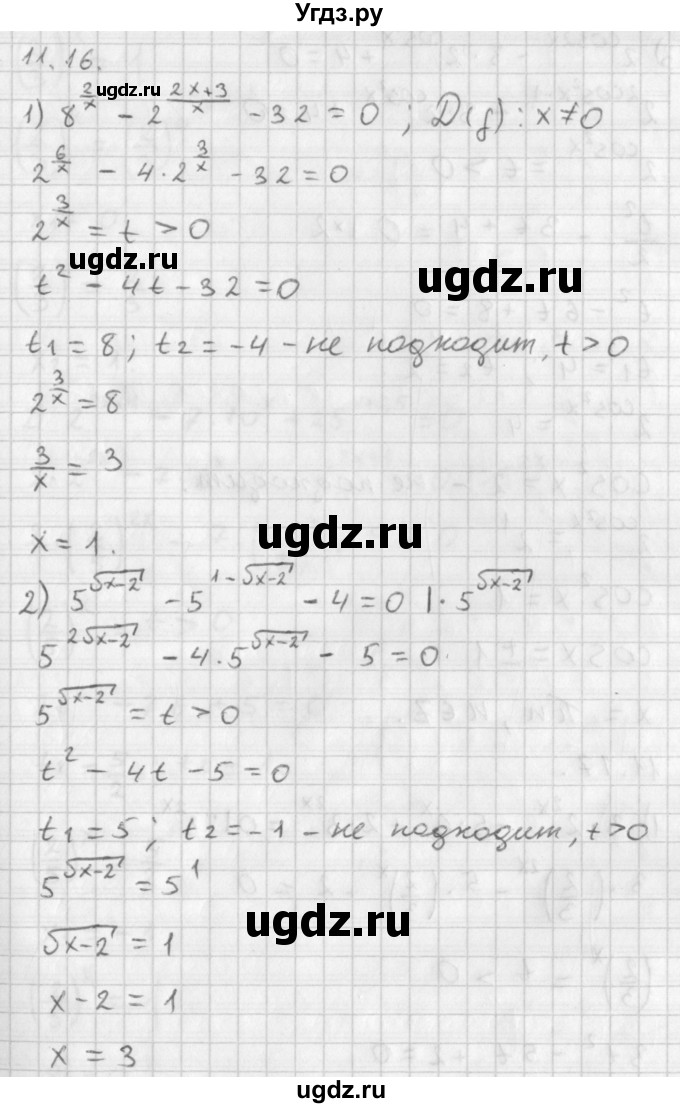 Угдз.ру
11.16.
ugdz.ru
1) 8^(2/x) - 2^((2x+3)/x) - 32 = 0 ; D(f) : x ≠ 0
2^(6/x) - 4·2^(3/x) - 32 = 0
2^(3/x) = t > 0
ugdz.ru
ugdz.ru
t² - 4t - 32 = 0
t1 = 8 ; t2 = -4 - не подходит, t > 0
2^(3/x) = 8
3/x = 3
ugdz.ru
x = 1.
2) 5^(√(x-2)) - 5^(1-√(x-2)) - 4 = 0 |· 5^(√(x-2))
5^(2√(x-2)) - 4·5^(√(x-2)) - 5 = 0
5^(√(x-2)) = t > 0
t² - 4t - 5 = 0
t1 = 5 ; t2 = -1 - не подходит, t > 0
5^(√(x-2)) = 5^1
ugdz.ru
√(x-2) = 1
x - 2 = 1
x = 3
ugdz.ru